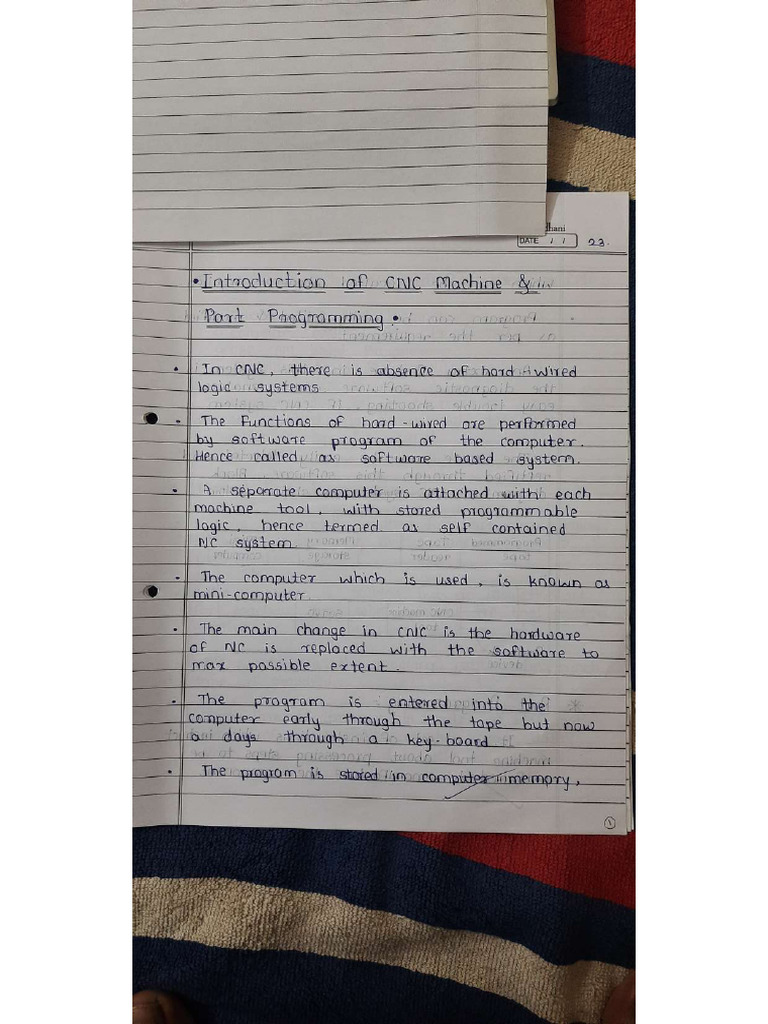 dhani
DATE / / 23.
• Introduction of CNC Machine &
Part Programming •
• In CNC, there is absence of hard-wired
logic systems
• The Functions of hard-wired are performed
by software program of the computer.
Hence called as software based system.
• A séparate computer is attached with each
machine tool, with stored programmable
logic, hence termed as self contained
NC system.
• The computer which is used, is known as
mini-computer.
• The main change in CNC is the hardware
of NC is replaced with the software to
max possible extent.
• The program is entered into the
computer early through the tape but now
a days through a key-board
• The program is stored in computer memory,
1